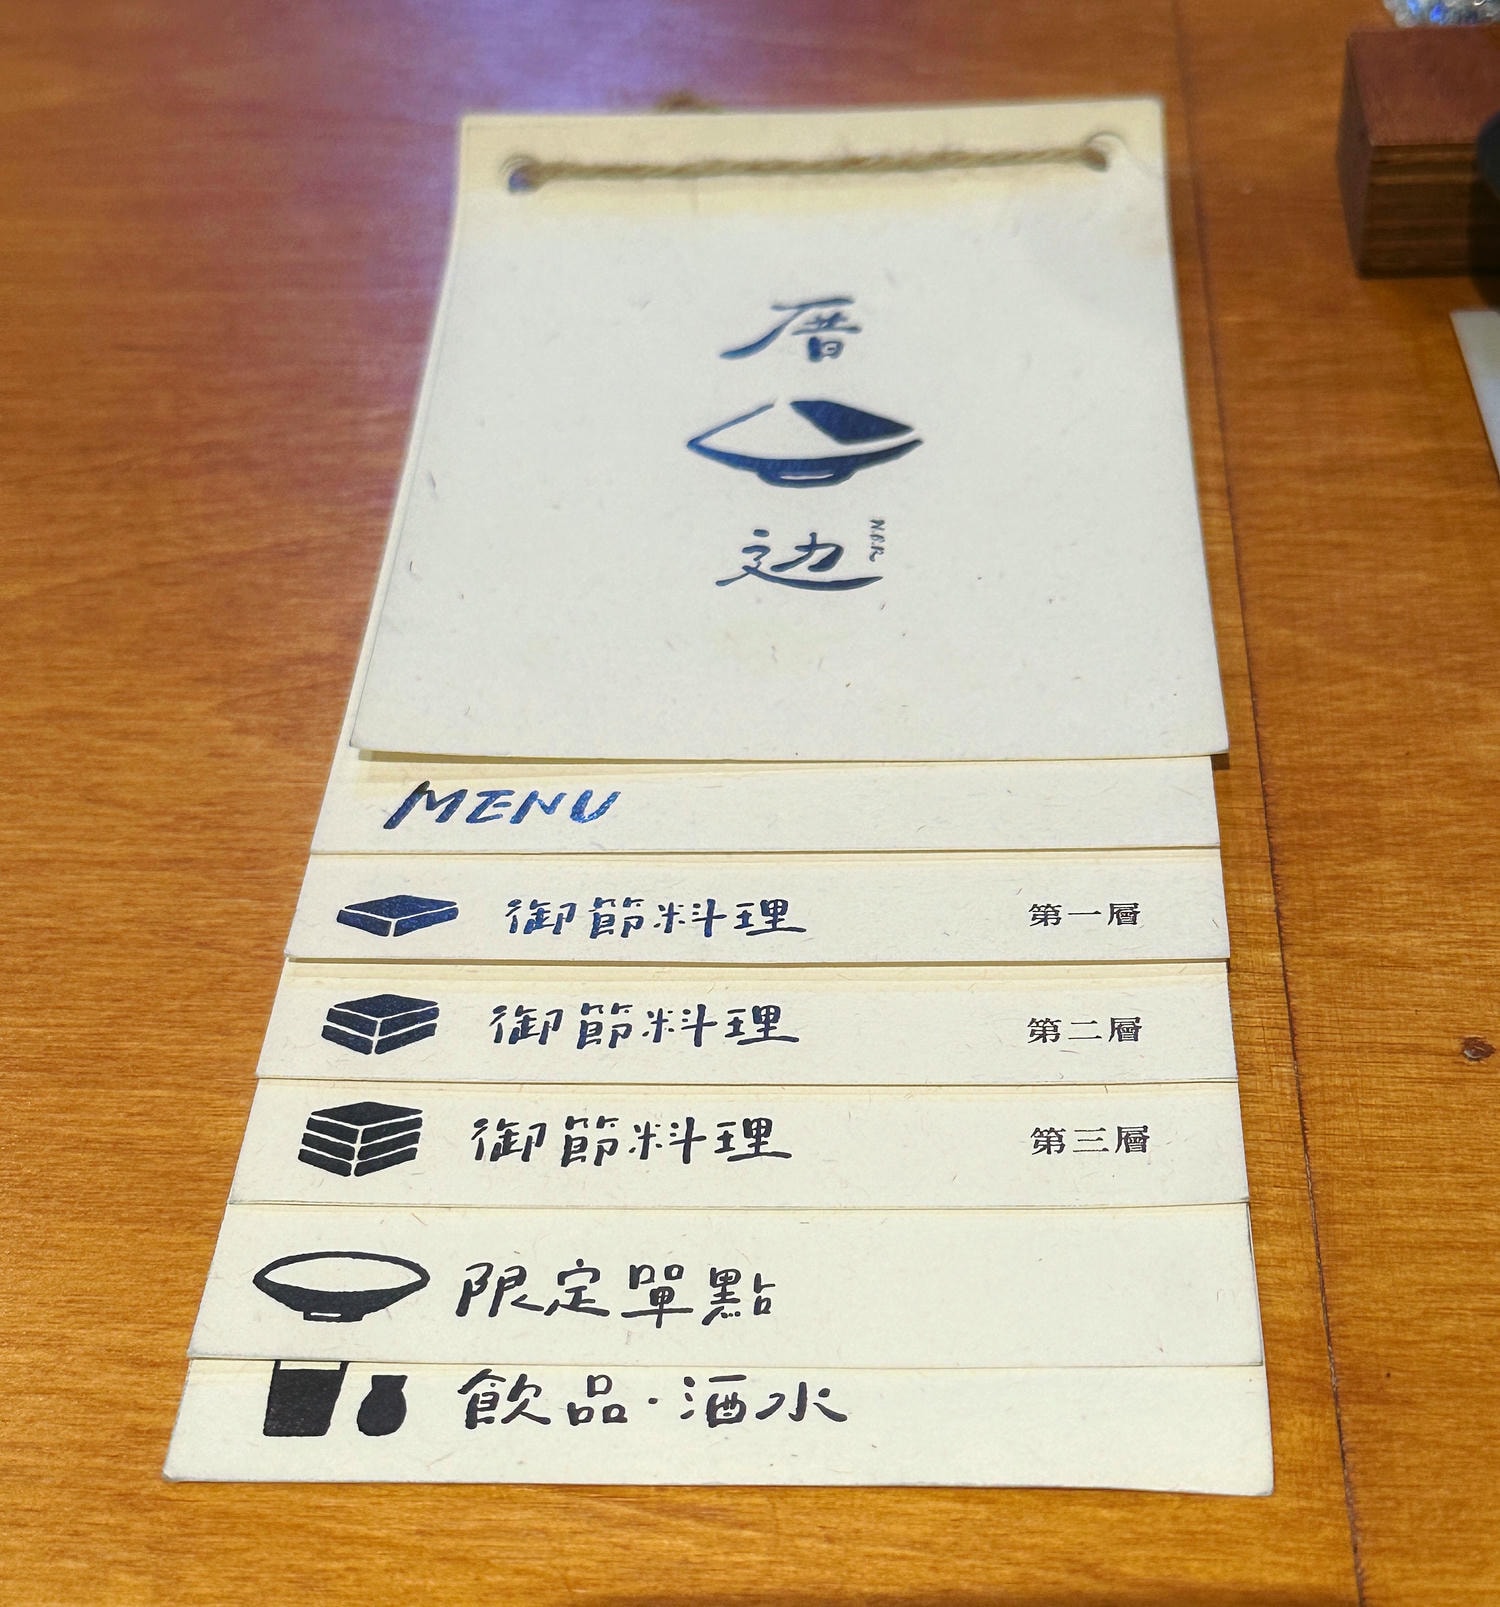 厝
边
N.B.R.
MENU
御節料理 第一層
御節料理 第二層
御節料理 第三層
限定單點
飲品·酒水